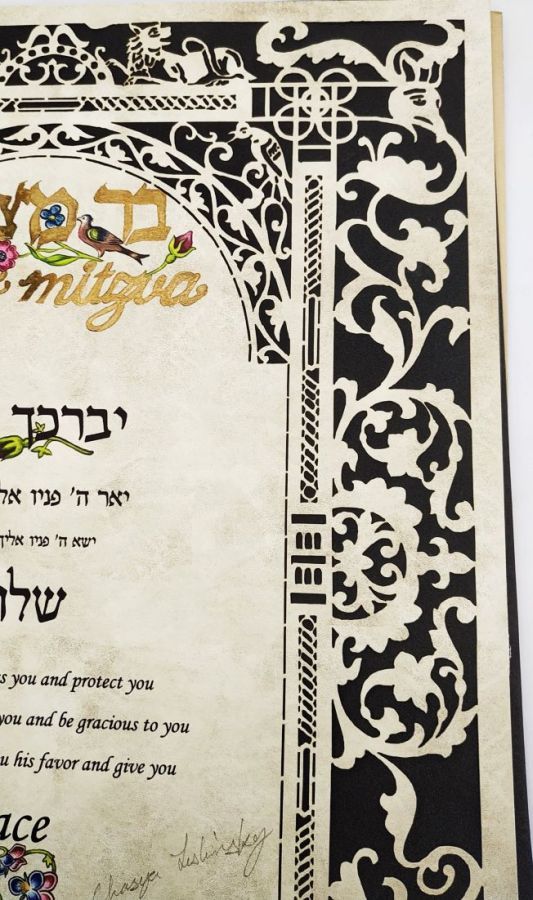 בר מצ
mitzva
יברכך
יאר ה' פניו אלי
ישא ה' פניו אליך
שלו
s you and protect you
you and be gracious to you
u his favor and give you
ace
Chasya